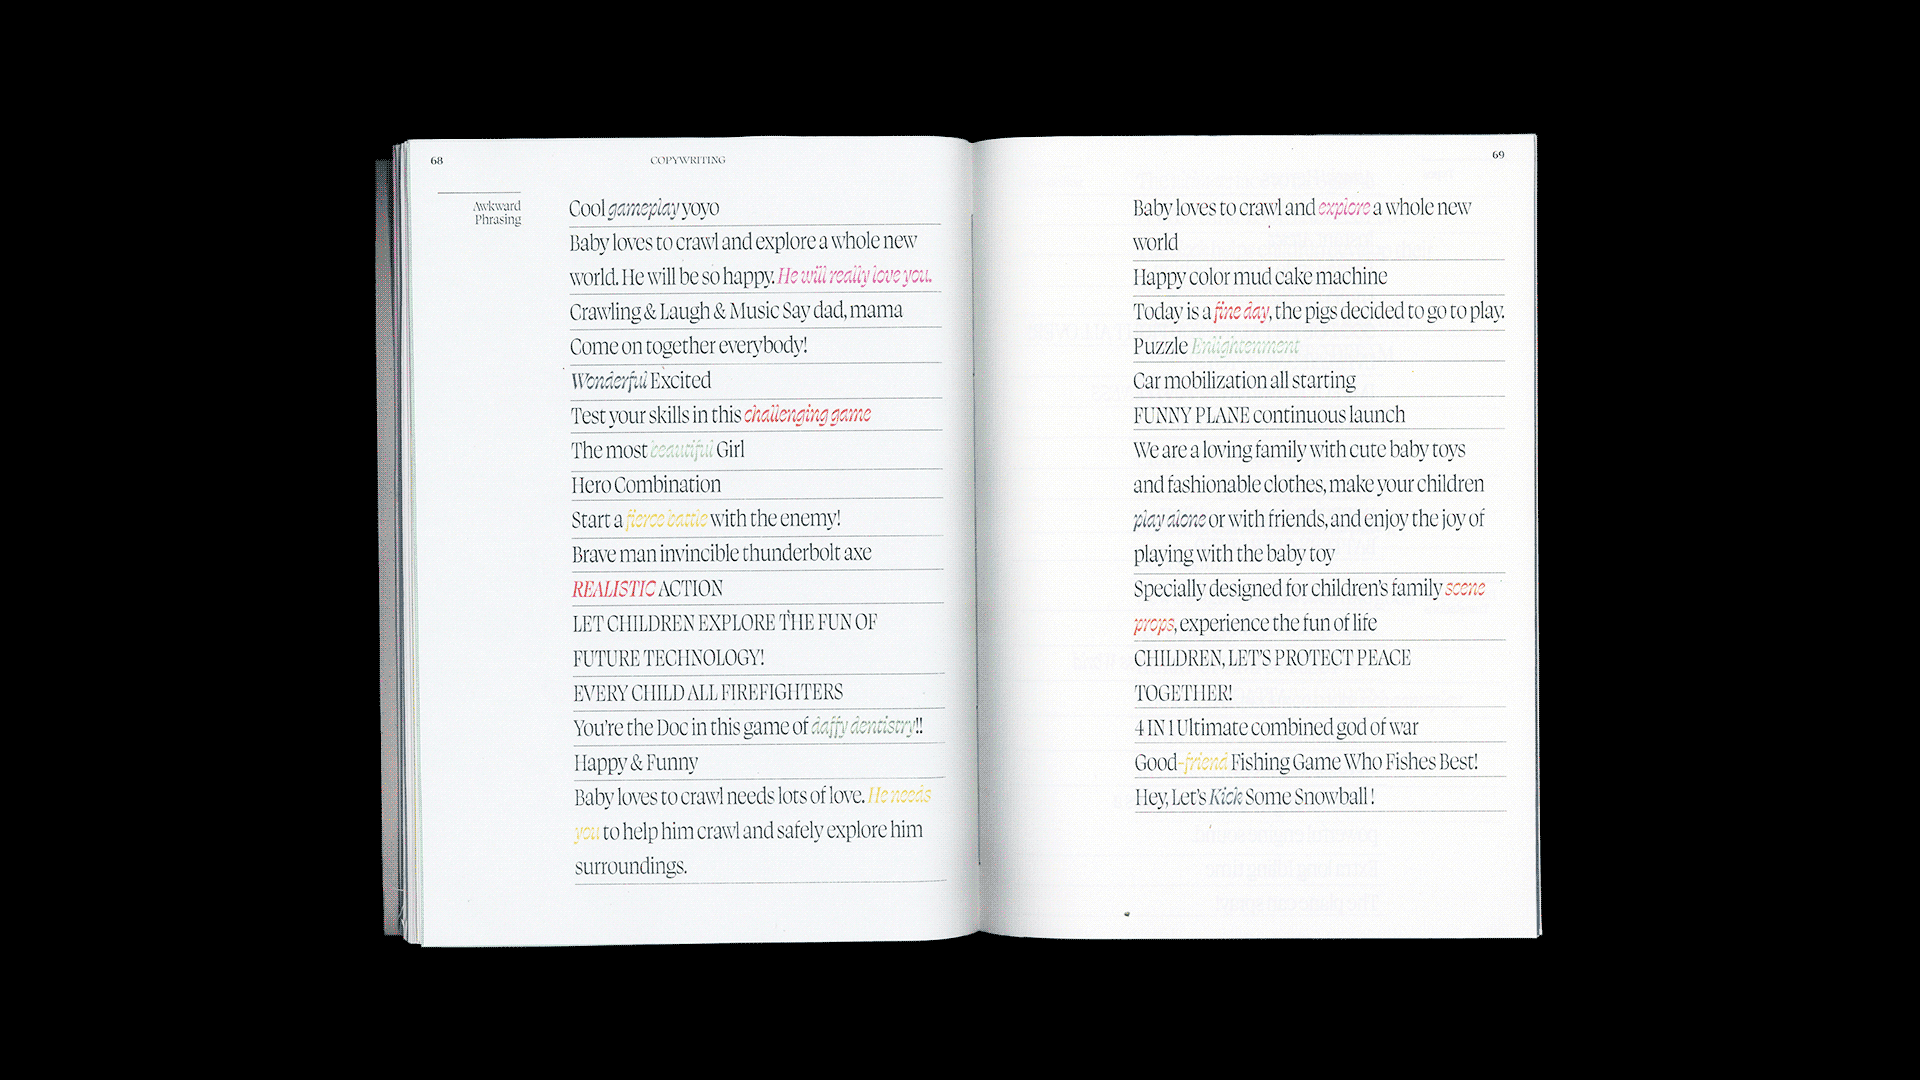 68
COPYWRITING
Awkward
Phrasing
Cool gameplay yoyo
Baby loves to crawl and explore a whole new
world. He will be so happy. He will really love you.
Crawling & Laugh & Music Say dad, mama
Come on together everybody!
Wonderful Excited
Test your skills in this challenging game
The most beautiful Girl
Hero Combination
Start a fierce battle with the enemy!
Brave man invincible thunderbolt axe
REALISTIC ACTION
LET CHILDREN EXPLORE THE FUN OF
FUTURE TECHNOLOGY!
EVERY CHILD ALL FIREFIGHTERS
You're the Doc in this game of daffy dentistry!!
Happy & Funny
Baby loves to crawl needs lots of love. He needs
you to help him crawl and safely explore him
surroundings.
69
Baby loves to crawl and explore a whole new
world
Happy color mud cake machine
Today is a fine day, the pigs decided to go to play.
Puzzle Enlightenment
Car mobilization all starting
FUNNY PLANE continuous launch
We are a loving family with cute baby toys
and fashionable clothes, make your children
play alone or with friends, and enjoy the joy of
playing with the baby toy
Specially designed for children's family scene
props, experience the fun of life
CHILDREN, LET'S PROTECT PEACE
TOGETHER!
4 IN 1 Ultimate combined god of war
Good-friend Fishing Game Who Fishes Best!
Hey, Let's Kick Some Snowball !